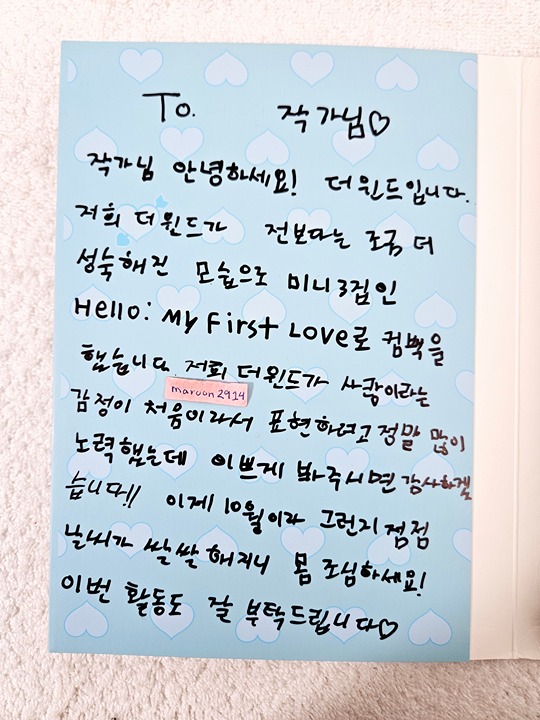 To. 작가님♡
작가님 안녕하세요! 더윈드입니다.
저희 더윈드가 전보다는 조금 더
성숙해진 모습으로 미니3집인
Hello: My First Love로 컴백을
했습니다. 저희 더윈드가 사랑이라는
maroon2914
감정이 처음이라서 표현하려고 정말 많이
노력했는데 이쁘게 봐주시면 감사하겠
습니다!! 이제 10월이라 그런지 점점
날씨가 쌀쌀해지니 몸 조심하세요!
이번 활동도 잘 부탁드립니다♡